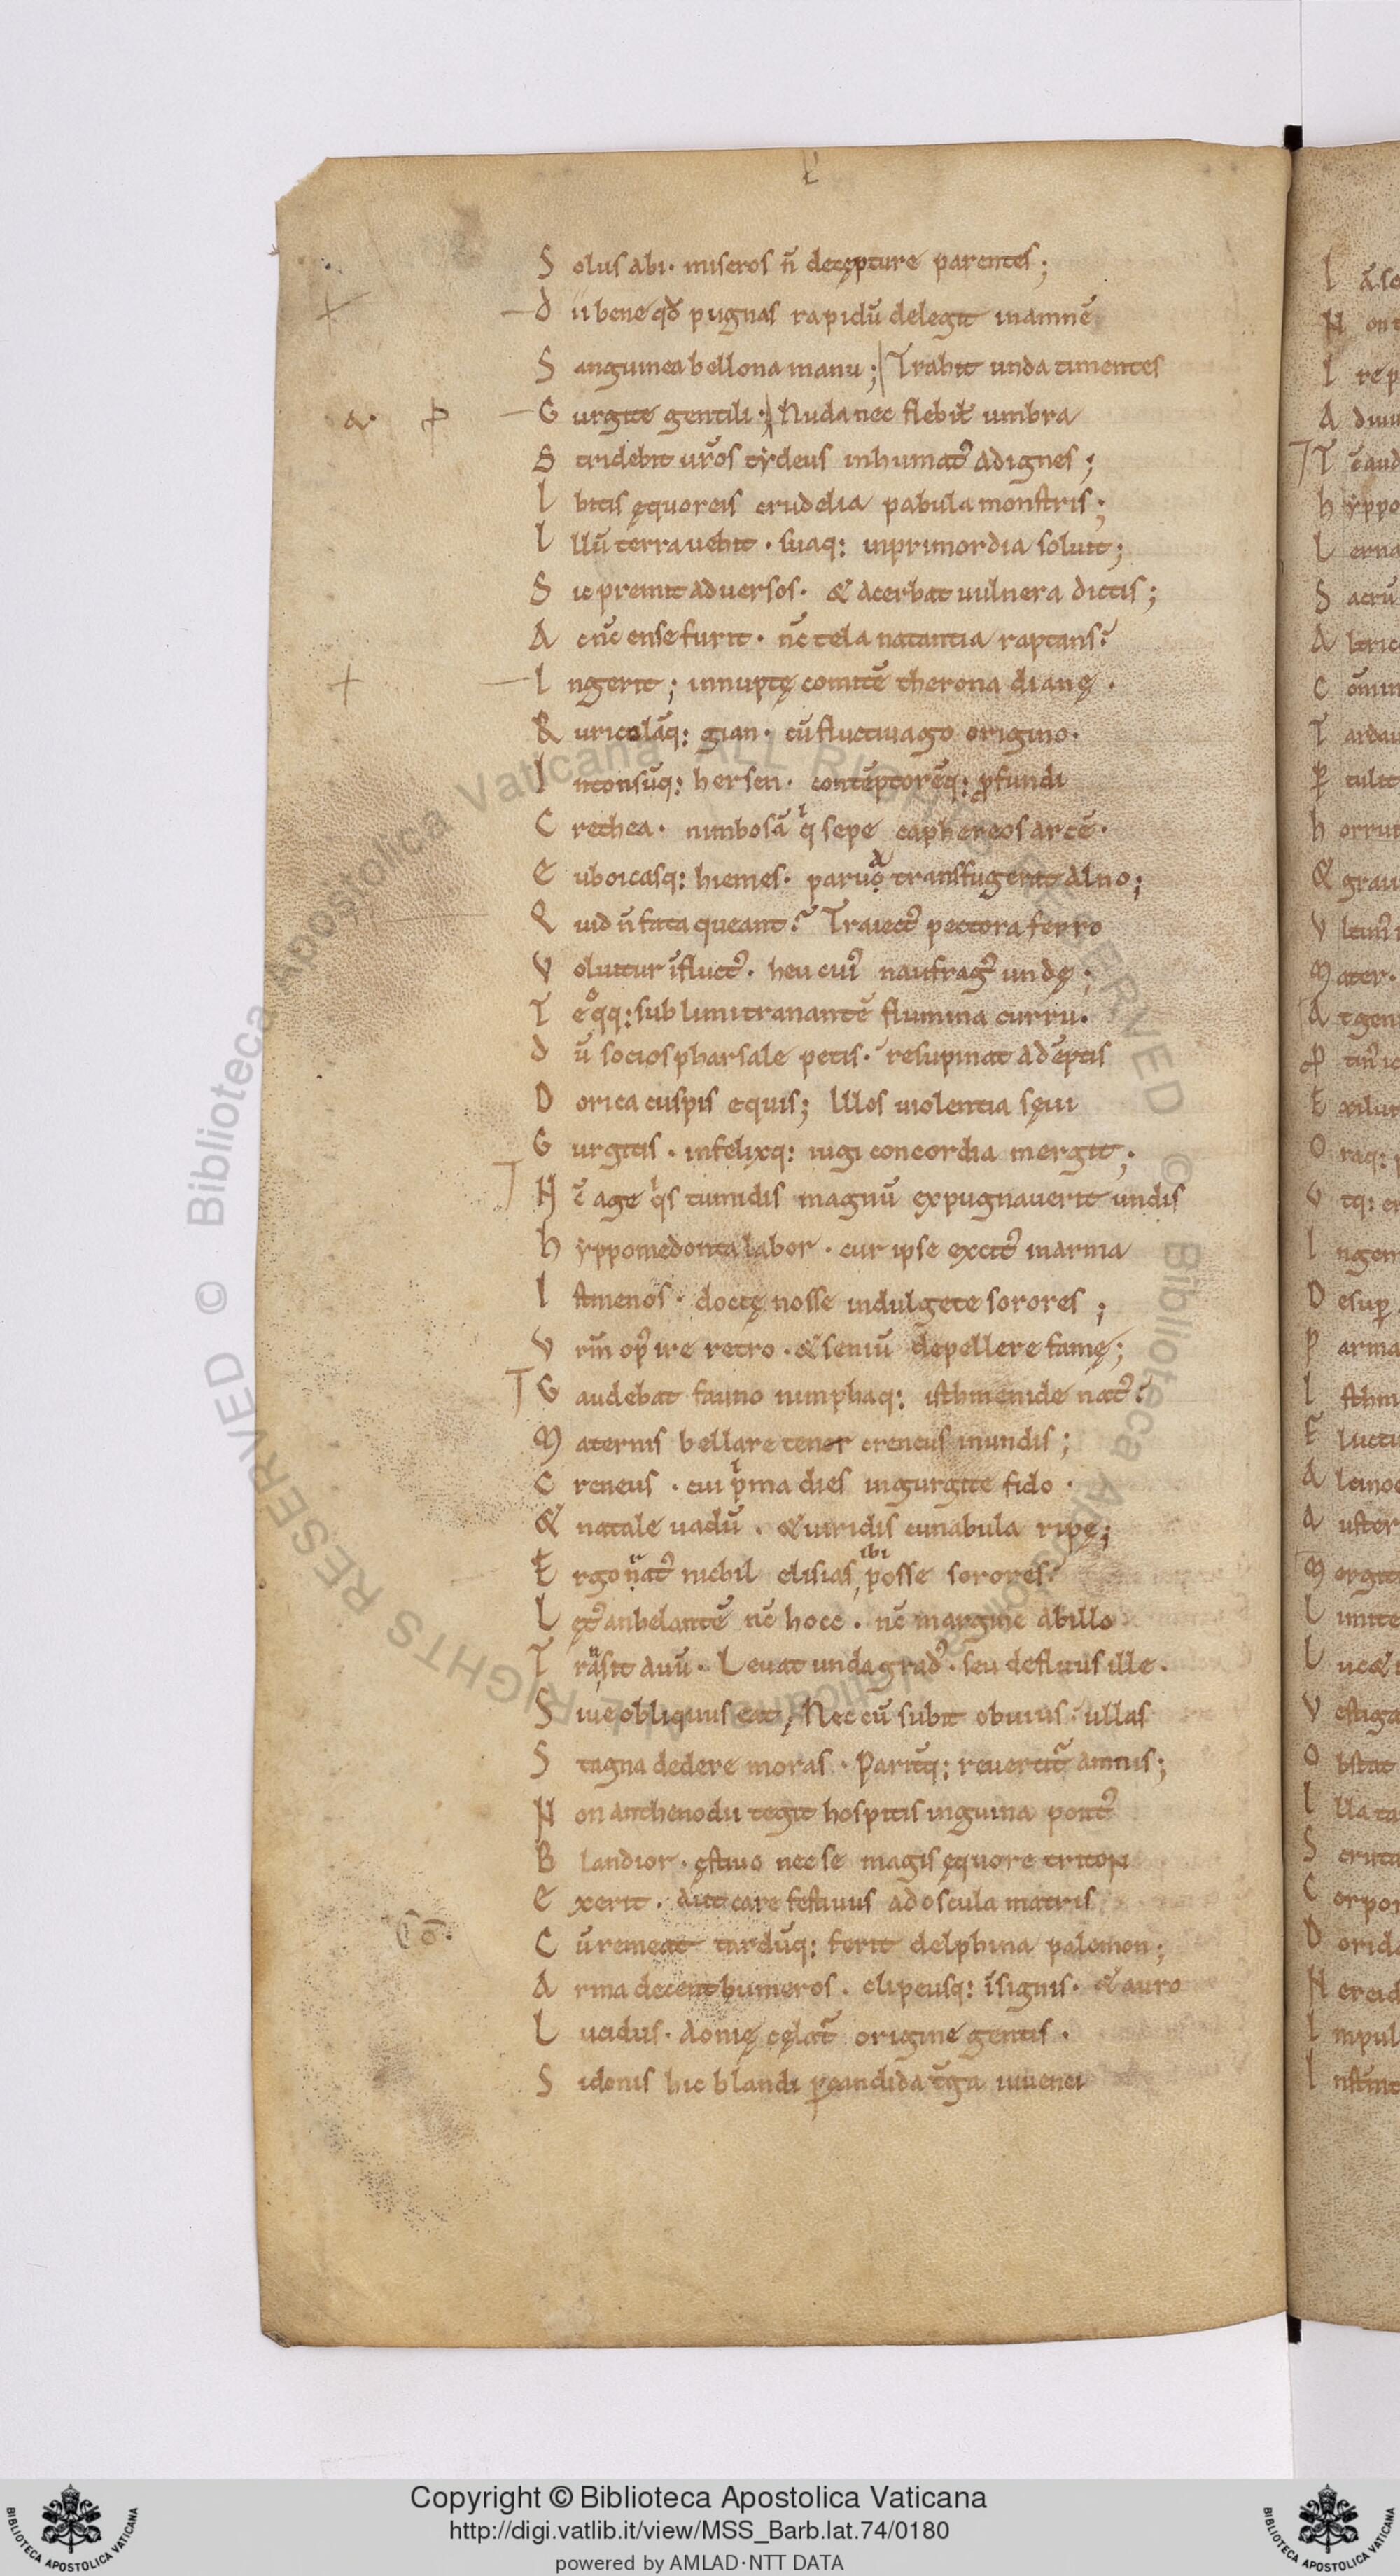 S olus abi. miseros ñ decepture parentes;
D ii bene qđ pugnas rapidū delegit inamnē
S anguinea bellona manu; Trahit unda timentes
a. p G urgite gentili; Nuda nec flebił umbra
S tridebit ur̄os tydeus inhumat᾿ adignes;
I bitis ęquoreis crudelia pabula monstris;
I llū terra uehit. suaq: inprimordia soluit;
S ic premit aduersos. & acerbat uulnera dictis;
A c nc̄ ense furit. nc̄ tela natantia raptans?
I ngerit; innuptę comitē therona dianę.
R uricolāq: gian. cū fluctiuago origino.
I ntonsūq: hersen. contēptorēq: ꝓfundi
C rethea. nimbosā qͥ sepe caphereos arcē.
E uboicasq: hiemes. paruo transfugerat alno;
Q uid ñ fata queant? Traiect᾿ pectora ferro
V oluitur īfluct᾿. heu cui᾿ naufrag᾿ undę;
T e qͦq: sublimi tranantē flumina curru.
D ū socios pharsale petis. resupinat adēptis
D orica cuspis equis; Illos uiolentia sęui
G urgitis. infelixq: iugi concordia mergit;
N c̄ age qͥs tumidis magnū expugnauerit undis
h yppomedonta labor. cur ipse excit᾿ inarma
I smenos. doctę nosse indulgete sorores;
V rm̄ op᾿ ire retro. & seniū depellere famę;
G audebat fauno nimphaq: isthmenide nat᾿
M aternis bellare tener creneus inundis;
C reneus. cui pͥma dies ingurgite fido.
& natale uadū. & uiridis cunabula ripę;
E rgo rat᾿ nichil elisias ibi posse sorores?
L ęt᾿ anhelantē nc̄ hoc. nc̄ margine abillo
T rāsit auū. Leuat unda grad᾿. seu defluus ille.
S iue obliquus eat, Nec cū subit obuius. ullas
S tagna dedere moras. Paritq: reuertit᷑ amnis;
N on anthenodii tegit hospitis inguina pont᾿
B landior. ęstiuo nec se magis ęquore triton
E xerit. Aut care festinus adoscula matris
Cō. C ū remeat tardūq: ferit delphina palemon;
A rma decent humeros. clipeusq: īsignis. & auro
L ucidus. Aonię cęlat᷑ origine gentis.
S idonis hic blandi ꝑcandida t̄ga iuuenci
Copyright © Biblioteca Apostolica Vaticana
http://digi.vatlib.it/view/MSS_Barb.lat.74/0180
powered by AMLAD·NTT DATA